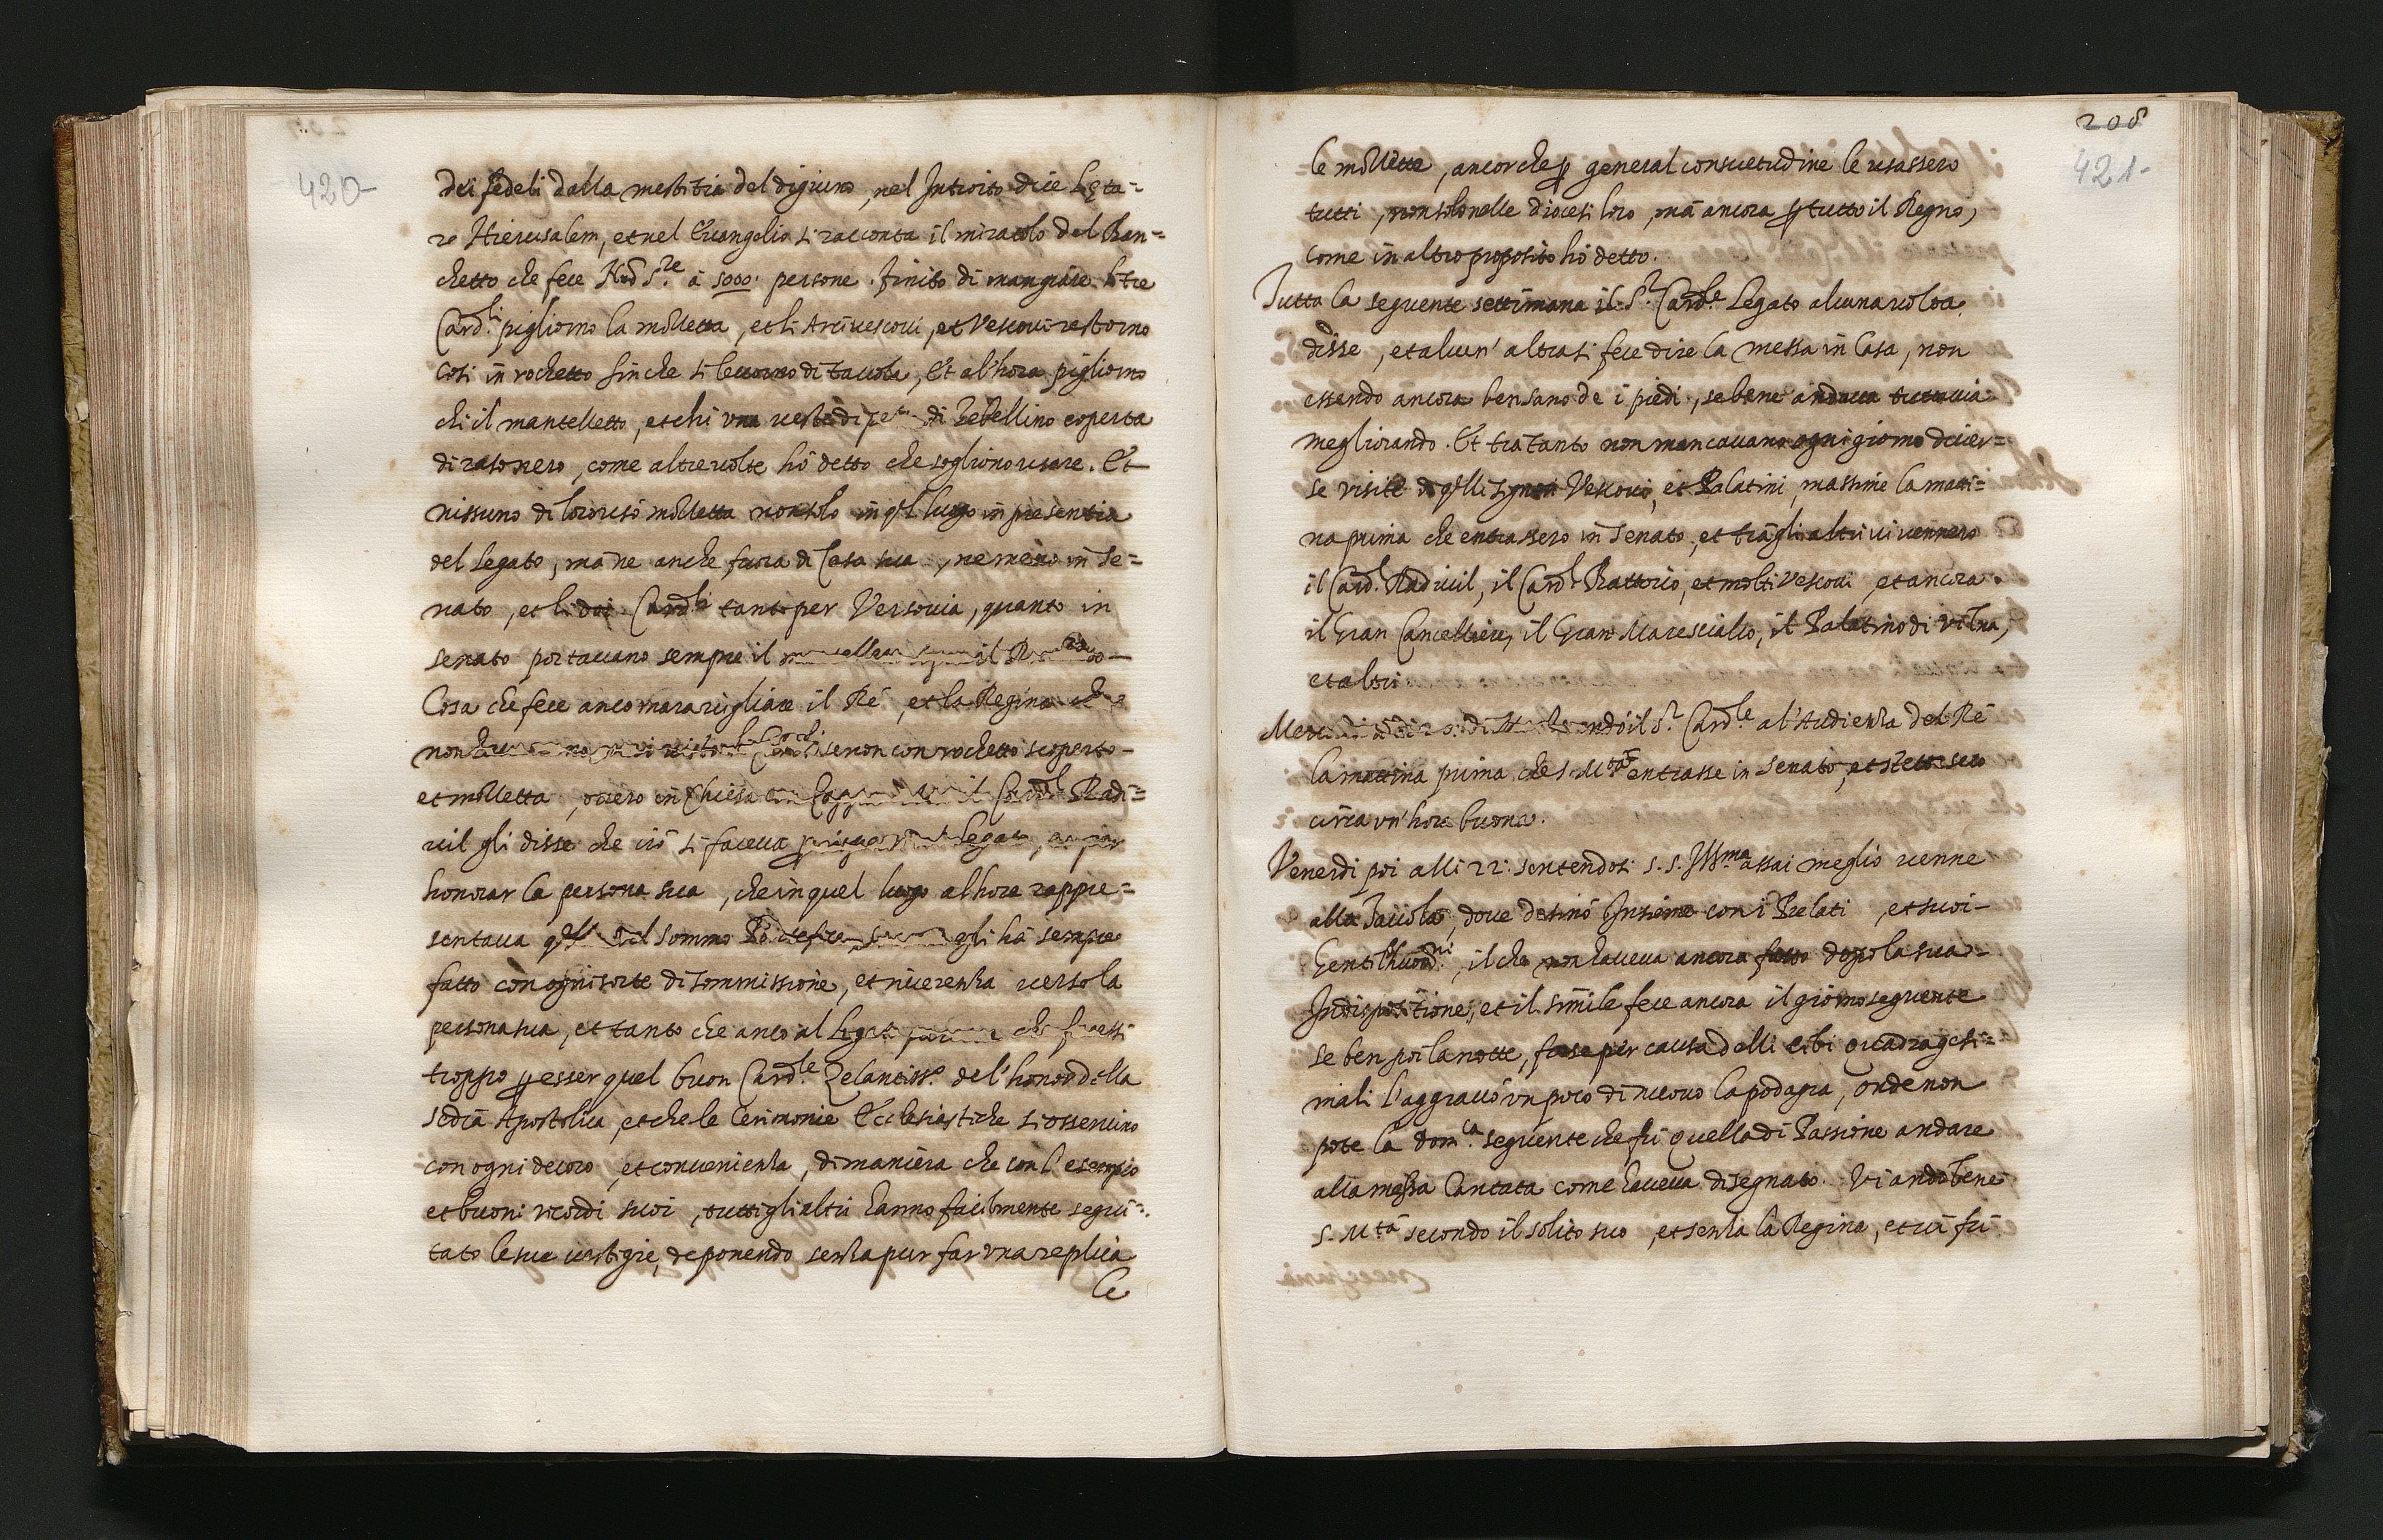 420
dei fedeli dalla mestitia del digiuno, nel Introito dice Lęta-
re Hierusalem, et nel Euangelio si racconta il miracolo del Ban-
chetto che fece Nrō Sre. à 5000: persone. Finito di mangiare li tre
Cardli. pigliorno la mozzetta, et li Arciuescoui, et Vescoui restorno
così in rochetto sinche si leuorno di tauola, Et al'hora pigliorno
chi il mantelletto, et chi una ueste di di Zebellino coperta
di raso nero, come altre uolte hò detto che sogliono usare. Et
nissuno di loro usò mozzetta non solo in ql luogo in presentia
del Legato, mà ne anche fuora di Casa sua, ne meno in Se-
nato, et li doi Cardli tanto per Versouia, quanto in
senato portauano sempre il il
Cosa che fece anco marauigliare il Rè, et la Regina che
non se non con rochetto scoperto
et mozzetta, ouero in Chiesa il Cardl Radi-
uil gli disse che ciò si faceua Legato, per
honorar la persona sua, che in quel luogo alhora rappre-
sentaua del sommo gli hà sempre
fatto con ogni sorte di sommissione, et riuerenza uerso la
persona sua, et tanto che anco al Legato che fuesse
troppo p esser quel buon Cardle. Zelantisso. del'honor della
sedia Apostolica, et che le Cerimonie Ecclesiastiche si osseruino
con ogni decoro, et conuenienza, di maniera che con l'esempio
et buoni ricordi suoi, tutti gli altri hanno facilmente segui-
tato le sue uestigie, deponendo senza pur far una replica
le
208
421
le mozzette, ancorche p general consuetudine le usassero
tutti, non solo nelle diocesi loro, mà ancora p tutto il Regno,
come in altro proposito hò detto.
Tutta la seguente settimana il Sr. Cardle Legato alcuna uolta
disse, et alcun'altra si fece dire la messa in Casa, non
essendo ancora ben sano de i piedi, se bene andaua tuttauia
megliorando. Et tra tanto non mancauano ogni giorno diuer-
se visite di qlli Signori Vescoui, et Palatini, massime la matti-
na prima che entrassero in Senato, et trà gli altri ui uennero
il Cardl. Radiuil, il Cardl. Battorio, et molti Vescoui et ancora
il Gran Cancelliere, il Gran Marescialco, il Palatino di Vilna,
et altri
Mercordi andò il Sr. Cardle al'Audienza del Rè
la mattina prima che S. Mtà entrasse in Senato, et stette seco
circa un'hora buona.
Venerdi poi alli 22: sentendosi S. S. Illma assai meglio uenne
alla Tauola, doue desinò Insieme con i Prelati, et suoi
Gentilhuomni, il che non haueua ancora fatto dopo la sua
Indispositione, et il simile fece ancora il giorno seguente
se ben poi la notte, forse per causa delli cibi quadragesi-
mali l'aggrauò un poco di nuouo la podagra, onde non
pote la domca. seguente che fù quella di Passione andare
alla messa Cantata come haueua disegnato. Vi andò bene
S. Mtà secondo il solito suo, et senza la Regina, et ui fù